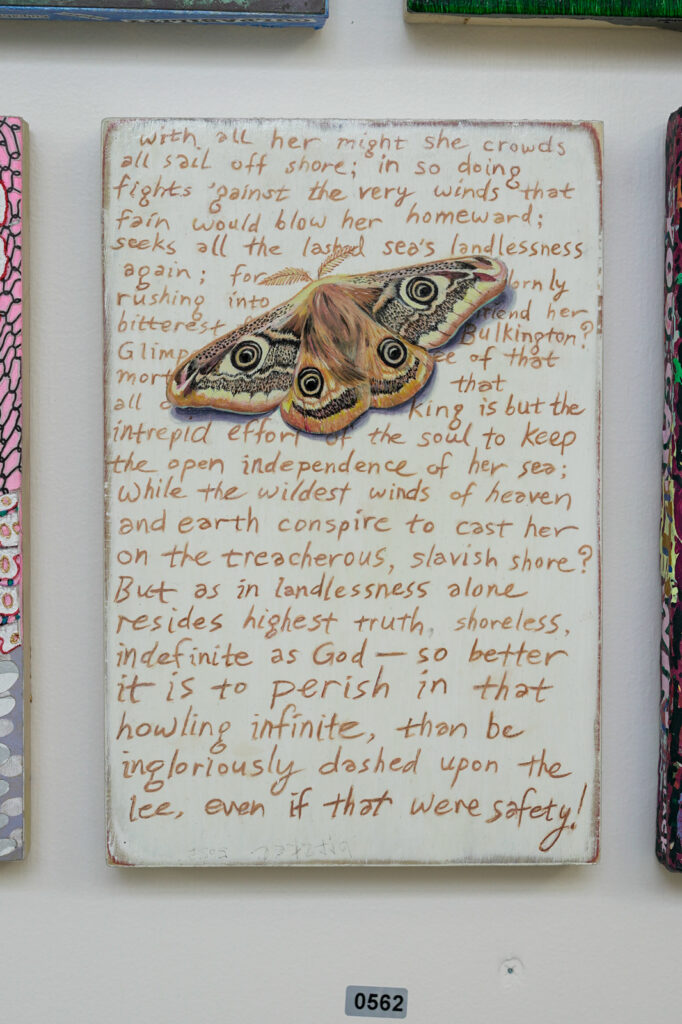 with all her might she crowds
all sail off shore; in so doing
fights 'gainst the very winds that
fain would blow her homeward;
seeks all the lashed sea's landlessness
again; for ornly
rushing into riend her
bitterest Bulkington?
Glimp ee of that
mort that
all king is but the
intrepid effort of the soul to keep
the open independence of her sea;
while the wildest winds of heaven
and earth conspire to cast her
on the treacherous, slavish shore?
But as in landlessness alone
resides highest truth, shoreless,
indefinite as God — so better
it is to perish in that
howling infinite, than be
ingloriously dashed upon the
lee, even if that were safety!
0562